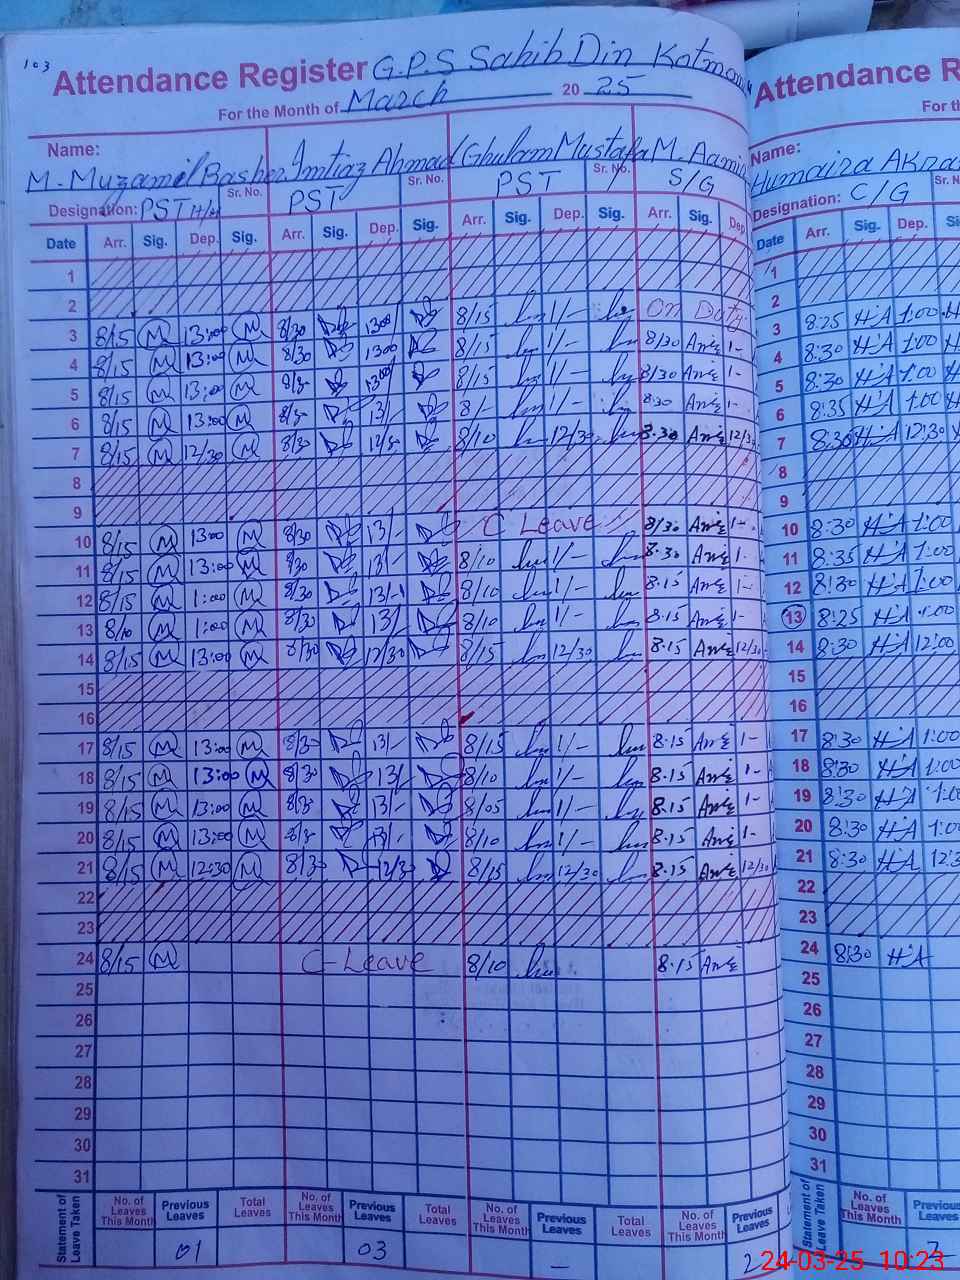 103
Attendance Register G.P.S Sahib Din
Attendance R
For the Month of March 20 25
For th
Name:
M. Muzamil Basher Imtiaz Ahmad Ghulam Mustafa M. Aamir
Name:
Humaira
Sr. No. Sr. No. Sr. No.
Designation: PST PST PST S/G
Designation: C/G
Date Arr. Sig. Dep. Sig. Arr. Sig. Dep. Sig. Arr. Sig. Dep. Sig. Arr. Sig. Dep
Date Arr. Sig. Dep.
1
2
3 8/15 M 13:00 M 8/30 1300 8/15 1/- On Duty
4 8/15 M 13:00 M 8/30 1300 8/15 1/- 8/30 1-
5 8/15 M 13:00 M 1300 8/15 1/- 8/30 1-
6 8/15 M 13:00 M 13/- 8/- 1/- 8:30 1-
7 8/15 M 12/30 M 8/30 8/10 12/30 8.30 12/30
8
9
10 8/15 M 1300 M 8/30 13/- C Leave 8/30 1-
11 8/15 M 13:00 M 8/30 13/- 8/10 1/- 8.30 1-
12 8/15 M 1:00 M 8/30 13/- 8/10 1/- 8.15 1-
13 8/10 M 1:00 M 8/30 13/- 8/10 1/- 8.15 1-
14 8/15 M 13:00 M 8/30 12/30 8/15 12/30 8.15 12/30
15
16
17 8/15 M 13:00 M 13/- 8/15 1/- 8.15 1-
18 8/15 M 13:00 M 8/30 13/- 8/10 1/- 8.15 1-
19 8/15 M 13:00 M 13/- 8/05 1/- 8.15 1-
20 8/15 M 13:00 M 13/- 8/10 1/- 8.15 1-
21 8/15 M 12:30 M 8/30 12/30 8/15 12/30 8.15 12/30
22
23
24 8/15 M C-Leave 8/10 8.15
25
26
27
28
29
30
31
1
2
3 8:25 H.A 1:00
4 8:30 H.A 1:00
5 8:30 H.A 1:00
6 8:35 H.A 1:00
7 8:30 H.A 12:30
8
9
10 8:30 H.A 1:00
11 8:35 H.A 1:00
12 8:30 H.A 1:00
13 8:25 H.A 1:00
14 8:30 H.A 12:00
15
16
17 8:30 H.A 1:00
18 8:30 H.A 1:00
19 8:30 H.A
20 8:30 H.A 1:00
21 8:30 H.A
22
23
24 8:30 H.A
25
26
27
28
29
30
31
Statement of Leave Taken
No. of Leaves This Month Previous Leaves Total Leaves No. of Leaves This Month Previous Leaves Total Leaves No. of Leaves This Month Previous Leaves Total Leaves No. of Leaves This Month Previous Leaves
01 03 - 2
Statement of Leave Taken
No. of Leaves This Month Previous Leaves
24-03-25 10:23